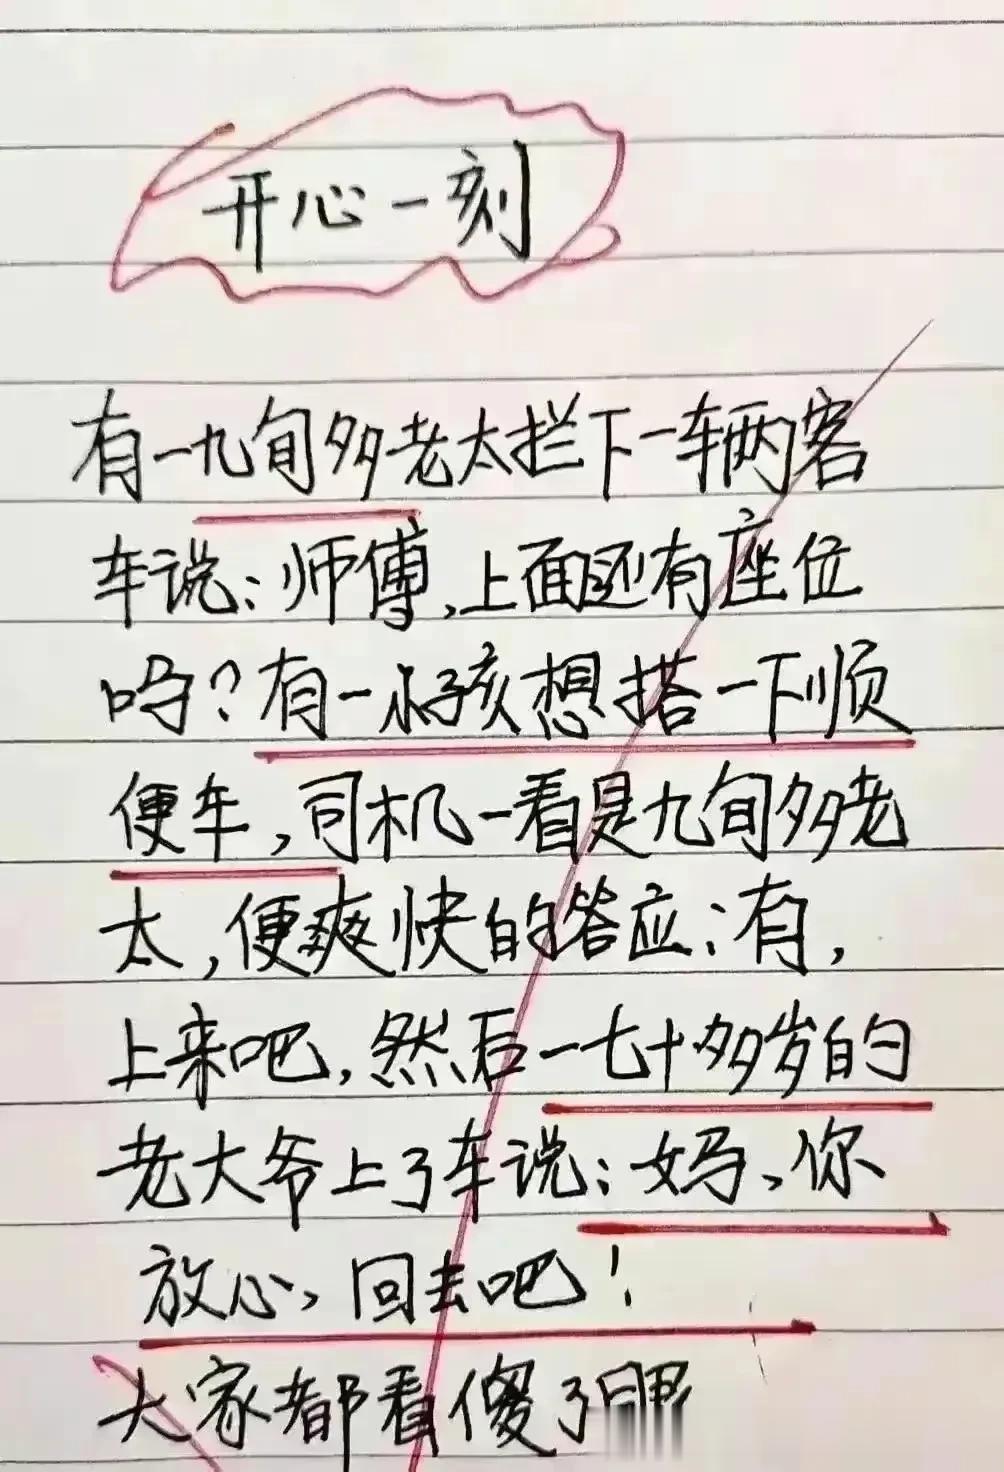 开心一刻
有一九旬多老太拦下一辆客
车说：师傅，上面还有座位
吗？有一小孩想搭一下顺
便车，司机一看是九旬多老
太，便爽快的答应：有，
上来吧，然后一七十多岁的
老大爷上了车说：妈、你
放心、回去吧！
大家都看傻了眼